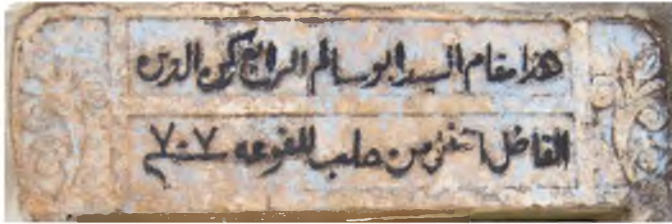 هذا مقام السيد ابو سالم الراجح كرين الدين
الفاضل من حلب للفوعه ٧٠٧